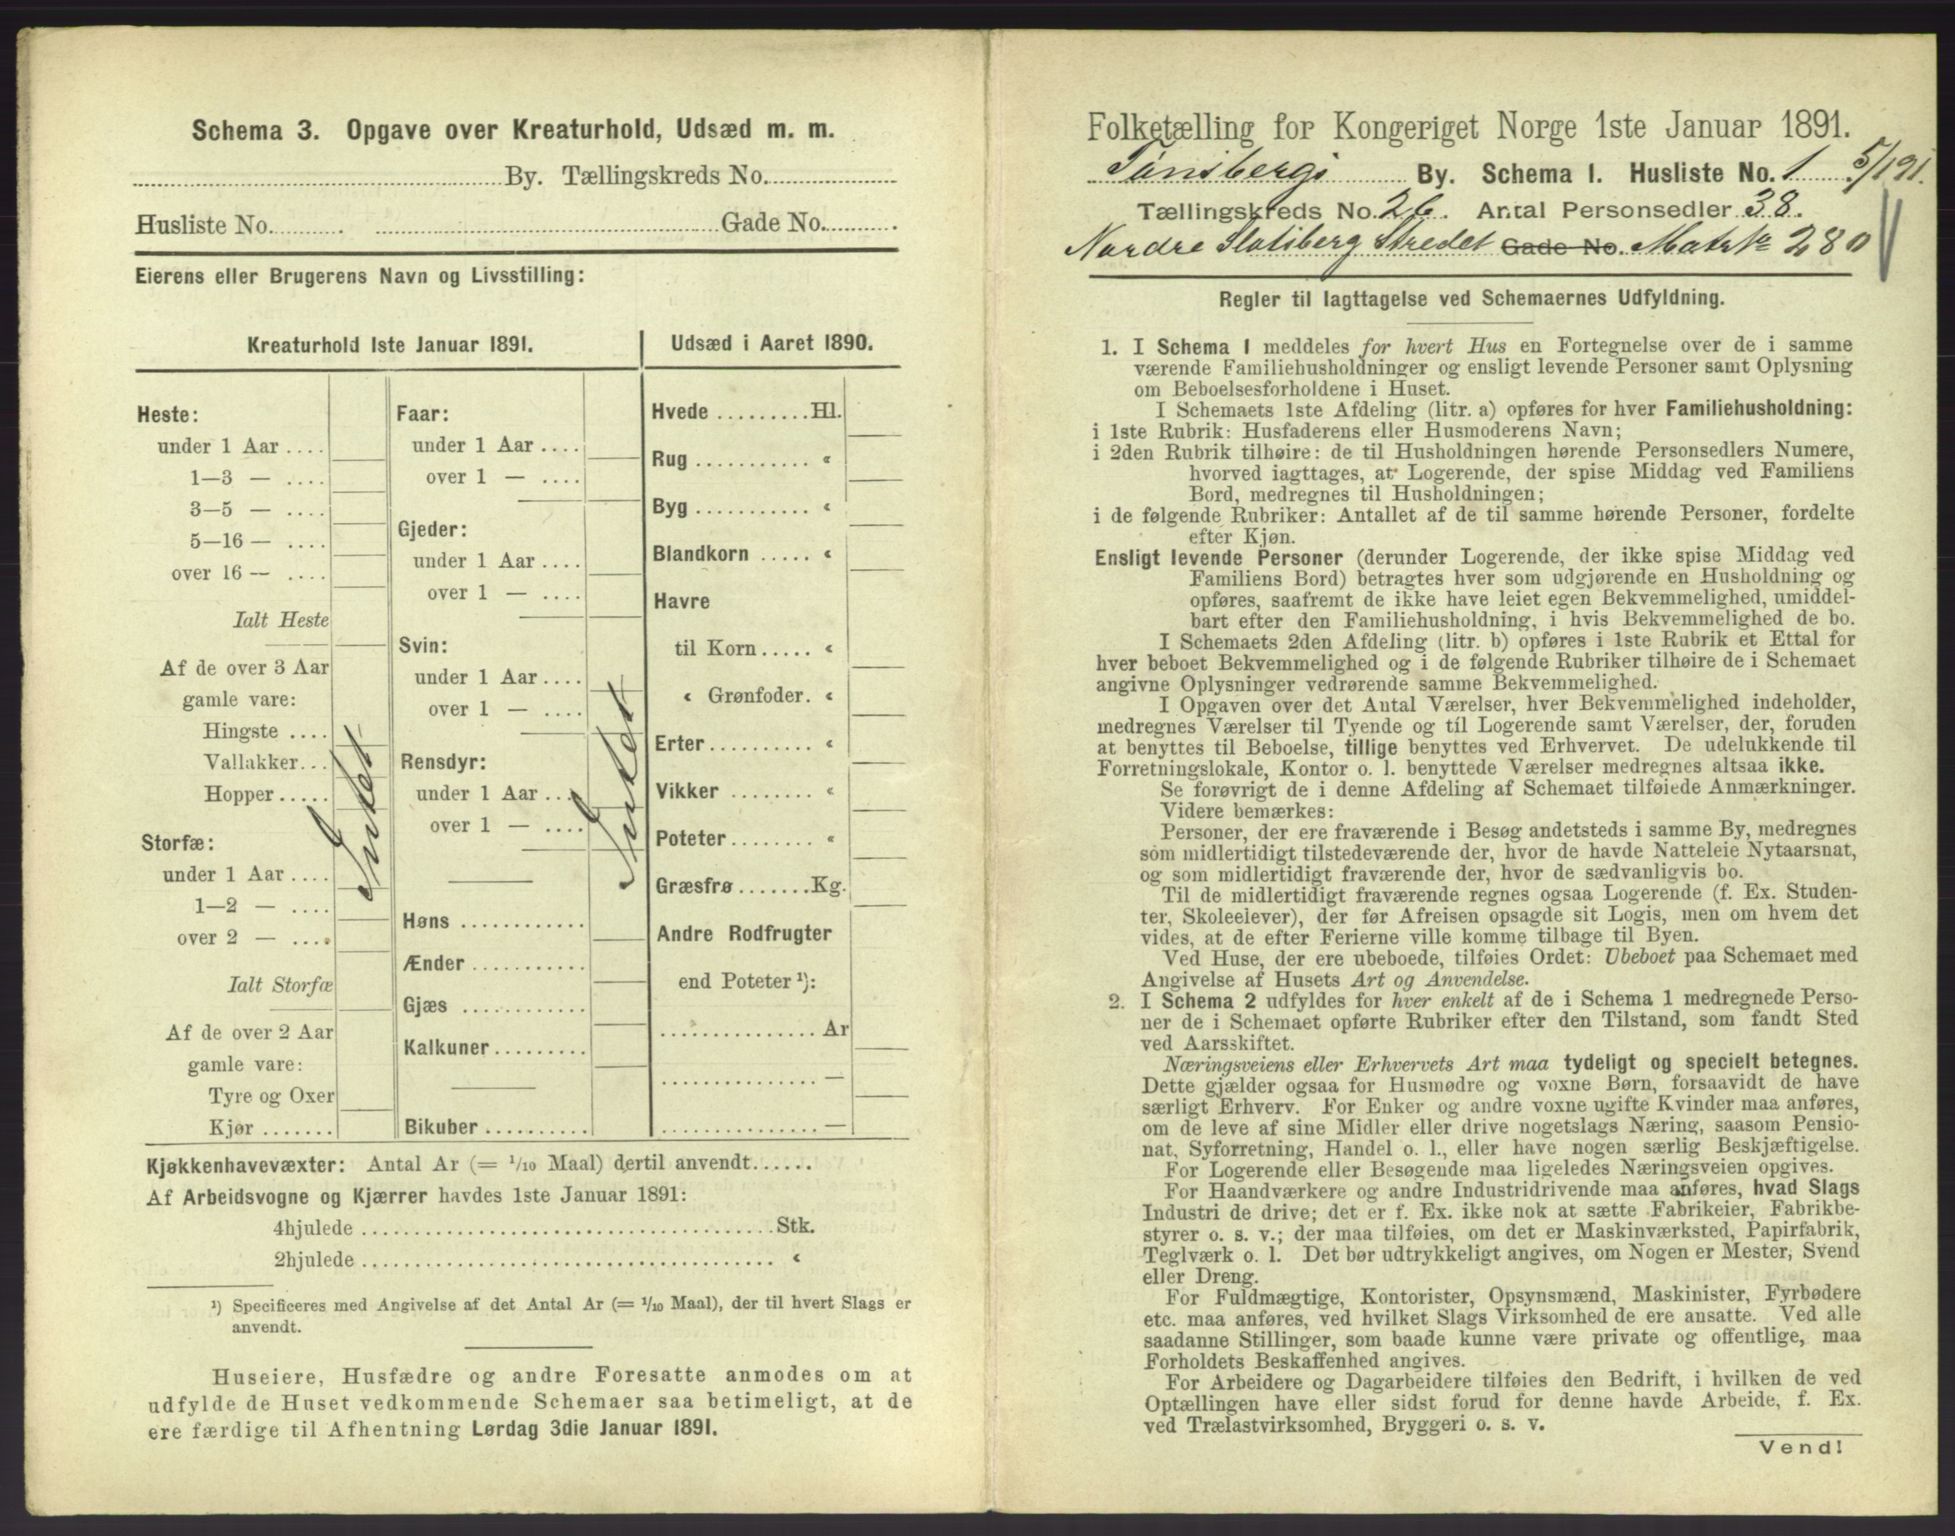 Schema 3. Opgave over Kreaturhold, Udsæd m. m.
By. Tællingskreds No.
Husliste No. Gade No.
Eierens eller Brugerens Navn og Livsstilling:
Kreaturhold 1ste Januar 1891.
Heste:
under 1 Aar....
1—3 — ....
3—5 — ....
5—16 — ....
over 16 — ....
Ialt Heste
Af de over 3 Aar
gamle vare:
Hingste ....
Vallakker...
Hopper .....
Storfæ:
under 1 Aar ....
1—2 — ....
over 2 — ....
Ialt Storfæ
Af de over 2 Aar
gamle vare:
Tyre og Oxer
Kjør .......
Intet
Faar:
under 1 Aar ....
over 1 — ....
Gjeder:
under 1 Aar ....
over 1 — ....
Svin:
under 1 Aar ....
over 1 — ....
Rensdyr:
under 1 Aar ...
over 1 — ....
Høns ............
Ænder ...........
Gjæs ............
Kalkuner.........
Bikuber ..........
Intet
Udsæd i Aaret 1890.
Hvede .........Hl.
Rug ........... «
Byg ........... «
Blandkorn ..... «
Havre
til Korn ..... «
« Grønfoder. «
Erter.......... «
Vikker ........ «
Poteter........ «
Græsfrø .......Kg.
Andre Rodfrugter
end Poteter ¹):
............... Ar
............... —
............... —
Kjøkkenhavevæxter: Antal Ar (= 1/10 Maal) dertil anvendt......
Af Arbeidsvogne og Kjærrer havdes 1ste Januar 1891:
4hjulede ........................................ Stk.
2hjulede ........................................ «
¹) Specificeres med Angivelse af det Antal Ar (= 1/10 Maal), der til hvert Slags er
anvendt.
Huseiere, Husfædre og andre Foresatte anmodes om at
udfylde de Huset vedkommende Schemaer saa betimeligt, at de
ere færdige til Afhentning Lørdag 3die Januar 1891.
Folketælling for Kongeriget Norge 1ste Januar 1891.
Tønsbergs By. Schema I. Husliste No. 1 5/1 91.
Tællingskreds No. 26. Antal Personsedler 38.
Nordre Slotsberg Strædet Gade No. Matr № 280
Regler til Iagttagelse ved Schemaernes Udfyldning.
1. I Schema 1 meddeles for hvert Hus en Fortegnelse over de i samme
værende Familiehusholdninger og ensligt levende Personer samt Oplysning
om Beboelsesforholdene i Huset.
I Schemaets 1ste Afdeling (litr. a) opføres for hver Familiehusholdning:
i 1ste Rubrik: Husfaderens eller Husmoderens Navn;
i 2den Rubrik tilhøire: de til Husholdningen hørende Personsedlers Numere,
hvorved iagttages, at Logerende, der spise Middag ved Familiens
Bord, medregnes til Husholdningen;
i de følgende Rubriker: Antallet af de til samme hørende Personer, fordelte
efter Kjøn.
Ensligt levende Personer (derunder Logerende, der ikke spise Middag ved
Familiens Bord) betragtes hver som udgjørende en Husholdning og
opføres, saafremt de ikke have leiet egen Bekvemmelighed, umiddel-
bart efter den Familiehusholdning, i hvis Bekvemmelighed de bo.
I Schemaets 2den Afdeling (litr. b) opføres i 1ste Rubrik et Ettal for
hver beboet Bekvemmelighed og i de følgende Rubriker tilhøire de i Schemaet
angivne Oplysninger vedrørende samme Bekvemmelighed.
I Opgaven over det Antal Værelser, hver Bekvemmelighed indeholder,
medregnes Værelser til Tyende og til Logerende samt Værelser, der, foruden
at benyttes til Beboelse, tillige benyttes ved Erhvervet. De udelukkende til
Forretningslokale, Kontor o. l. benyttede Værelser medregnes altsaa ikke.
Se forøvrigt de i denne Afdeling af Schemaet tilføiede Anmærkninger.
Videre bemærkes:
Personer, der ere fraværende i Besøg andetsteds i samme By, medregnes
som midlertidigt tilstedeværende der, hvor de havde Natteleie Nytaarsnat,
og som midlertidigt fraværende der, hvor de sædvanligvis bo.
Til de midlertidigt fraværende regnes ogsaa Logerende (f. Ex. Studen-
ter, Skoleelever), der før Afreisen opsagde sit Logis, men om hvem det
vides, at de efter Ferierne ville komme tilbage til Byen.
Ved Huse, der ere ubeboede, tilføies Ordet: Ubeboet paa Schemaet med
Angivelse af Husets Art og Anvendelse.
2. I Schema 2 udfyldes for hver enkelt af de i Schema 1 medregnede Perso-
ner de i Schemaet opførte Rubriker efter den Tilstand, som fandt Sted
ved Aarsskiftet.
Næringsveiens eller Erhvervets Art maa tydeligt og specielt betegnes.
Dette gjælder ogsaa for Husmødre og voxne Børn, forsaavidt de have
særligt Erhverv. For Enker og andre voxne ugifte Kvinder maa anføres,
om de leve af sine Midler eller drive nogetslags Næring, saasom Pensio-
nat, Syforretning, Handel o. l., eller have nogen særlig Beskjæftigelse.
For Logerende eller Besøgende maa ligeledes Næringsveien opgives.
For Haandværkere og andre Industridrivende maa anføres, hvad Slags
Industri de drive; det er f. Ex. ikke nok at sætte Fabrikeier, Fabrikbe-
styrer o. s. v.; der maa tilføies, om det er Maskinværksted, Papirfabrik,
Teglværk o. l. Det bør udtrykkeligt angives, om Nogen er Mester, Svend
eller Dreng.
For Fuldmægtige, Kontorister, Opsynsmænd, Maskinister, Fyrbødere
etc. maa anføres, ved hvilket Slags Virksomhed de ere ansatte. Ved alle
saadanne Stillinger, som baade kunne være private og offentlige, maa
Forholdets Beskaffenhed angives.
For Arbeidere og Dagarbeidere tilføies den Bedrift, i hvilken de ved
Optællingen have eller sidst forud for denne havde Arbeide, f. Ex.
ved Trælastvirksomhed, Bryggeri o. s. v.
Vend!